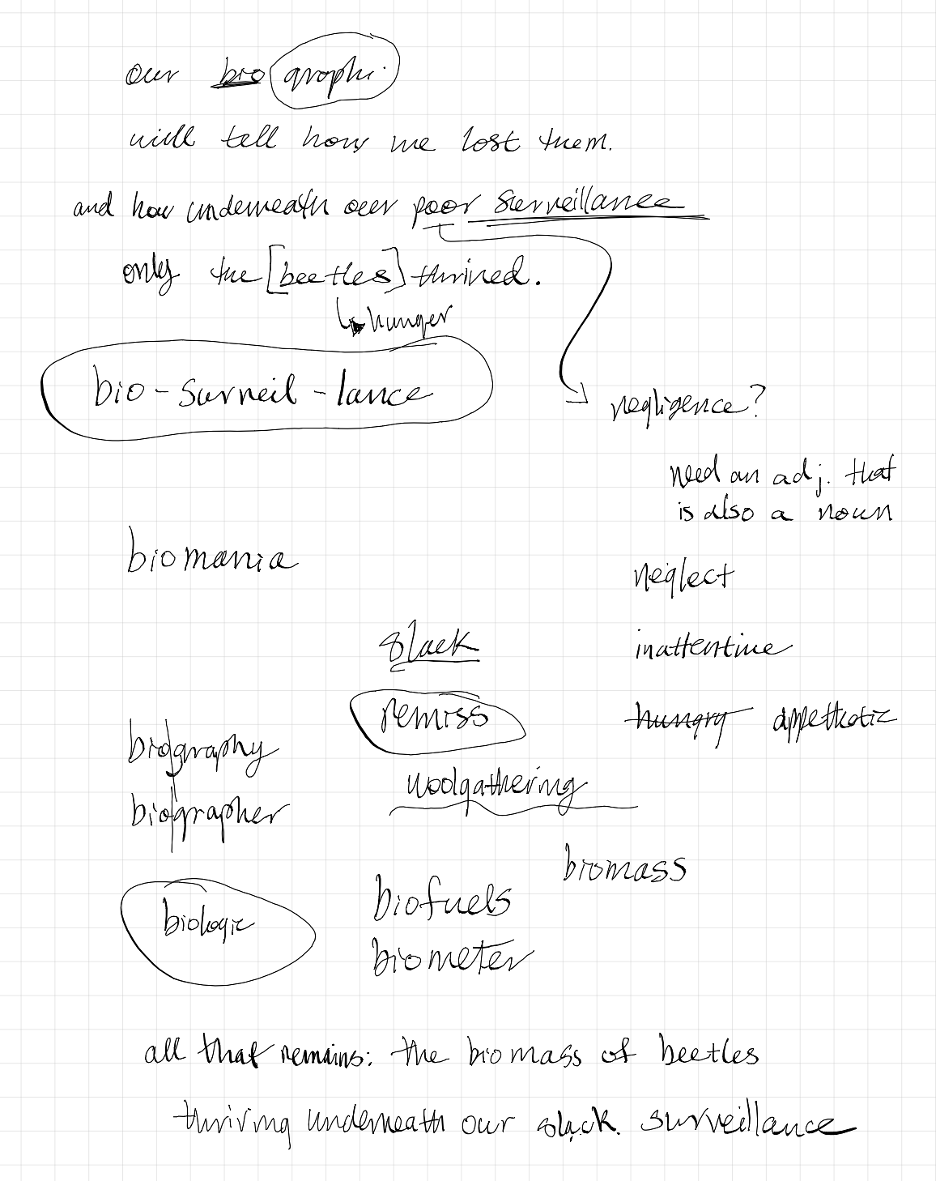 our bio graphi.
will tell how we lost them.
and how underneath our poor surveillance
only the [beetles] thrived.
hunger
bio - surveil - lance
negligence?
need an adj. that
is also a noun
biomania
neglect
slack
inattentive
remiss
hungry appetitotic
biography
woolgathering
biographer
biomass
biofuels
biologic
biometer
all that remains: the biomass of beetles
thriving underneath our slack. surveillance